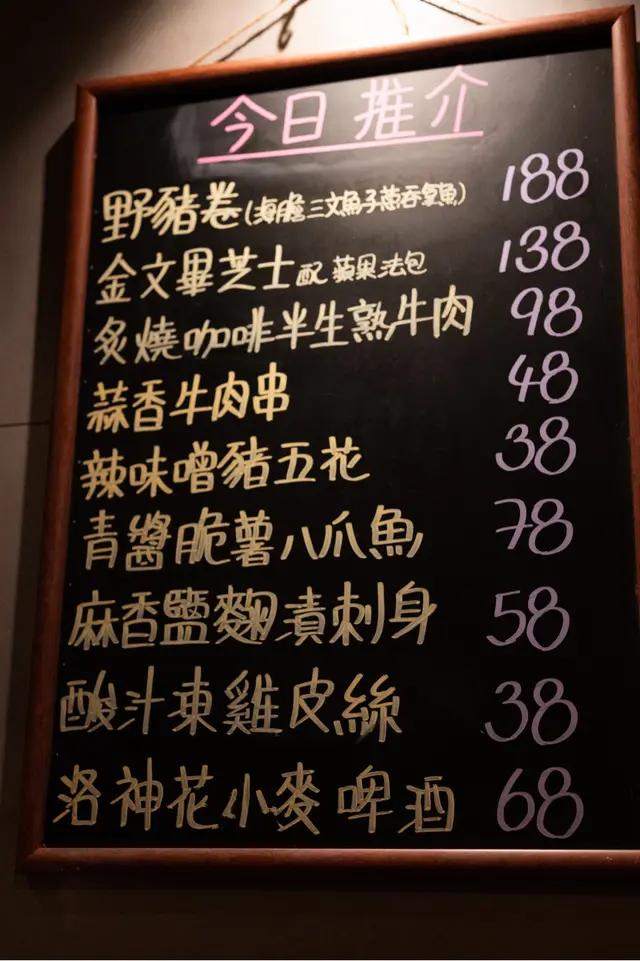 今日推介
野豬卷(海膽三文魚子蔥吞拿魚) 188
金文畢芝士配蘋果法包 138
炙燒咖啡半生熟牛肉 98
蒜香牛肉串 48
辣味噌豬五花 38
青醬脆薯八爪魚 78
麻香鹽麴漬刺身 58
酸汁東雞皮絲 38
洛神花小麥啤酒 68